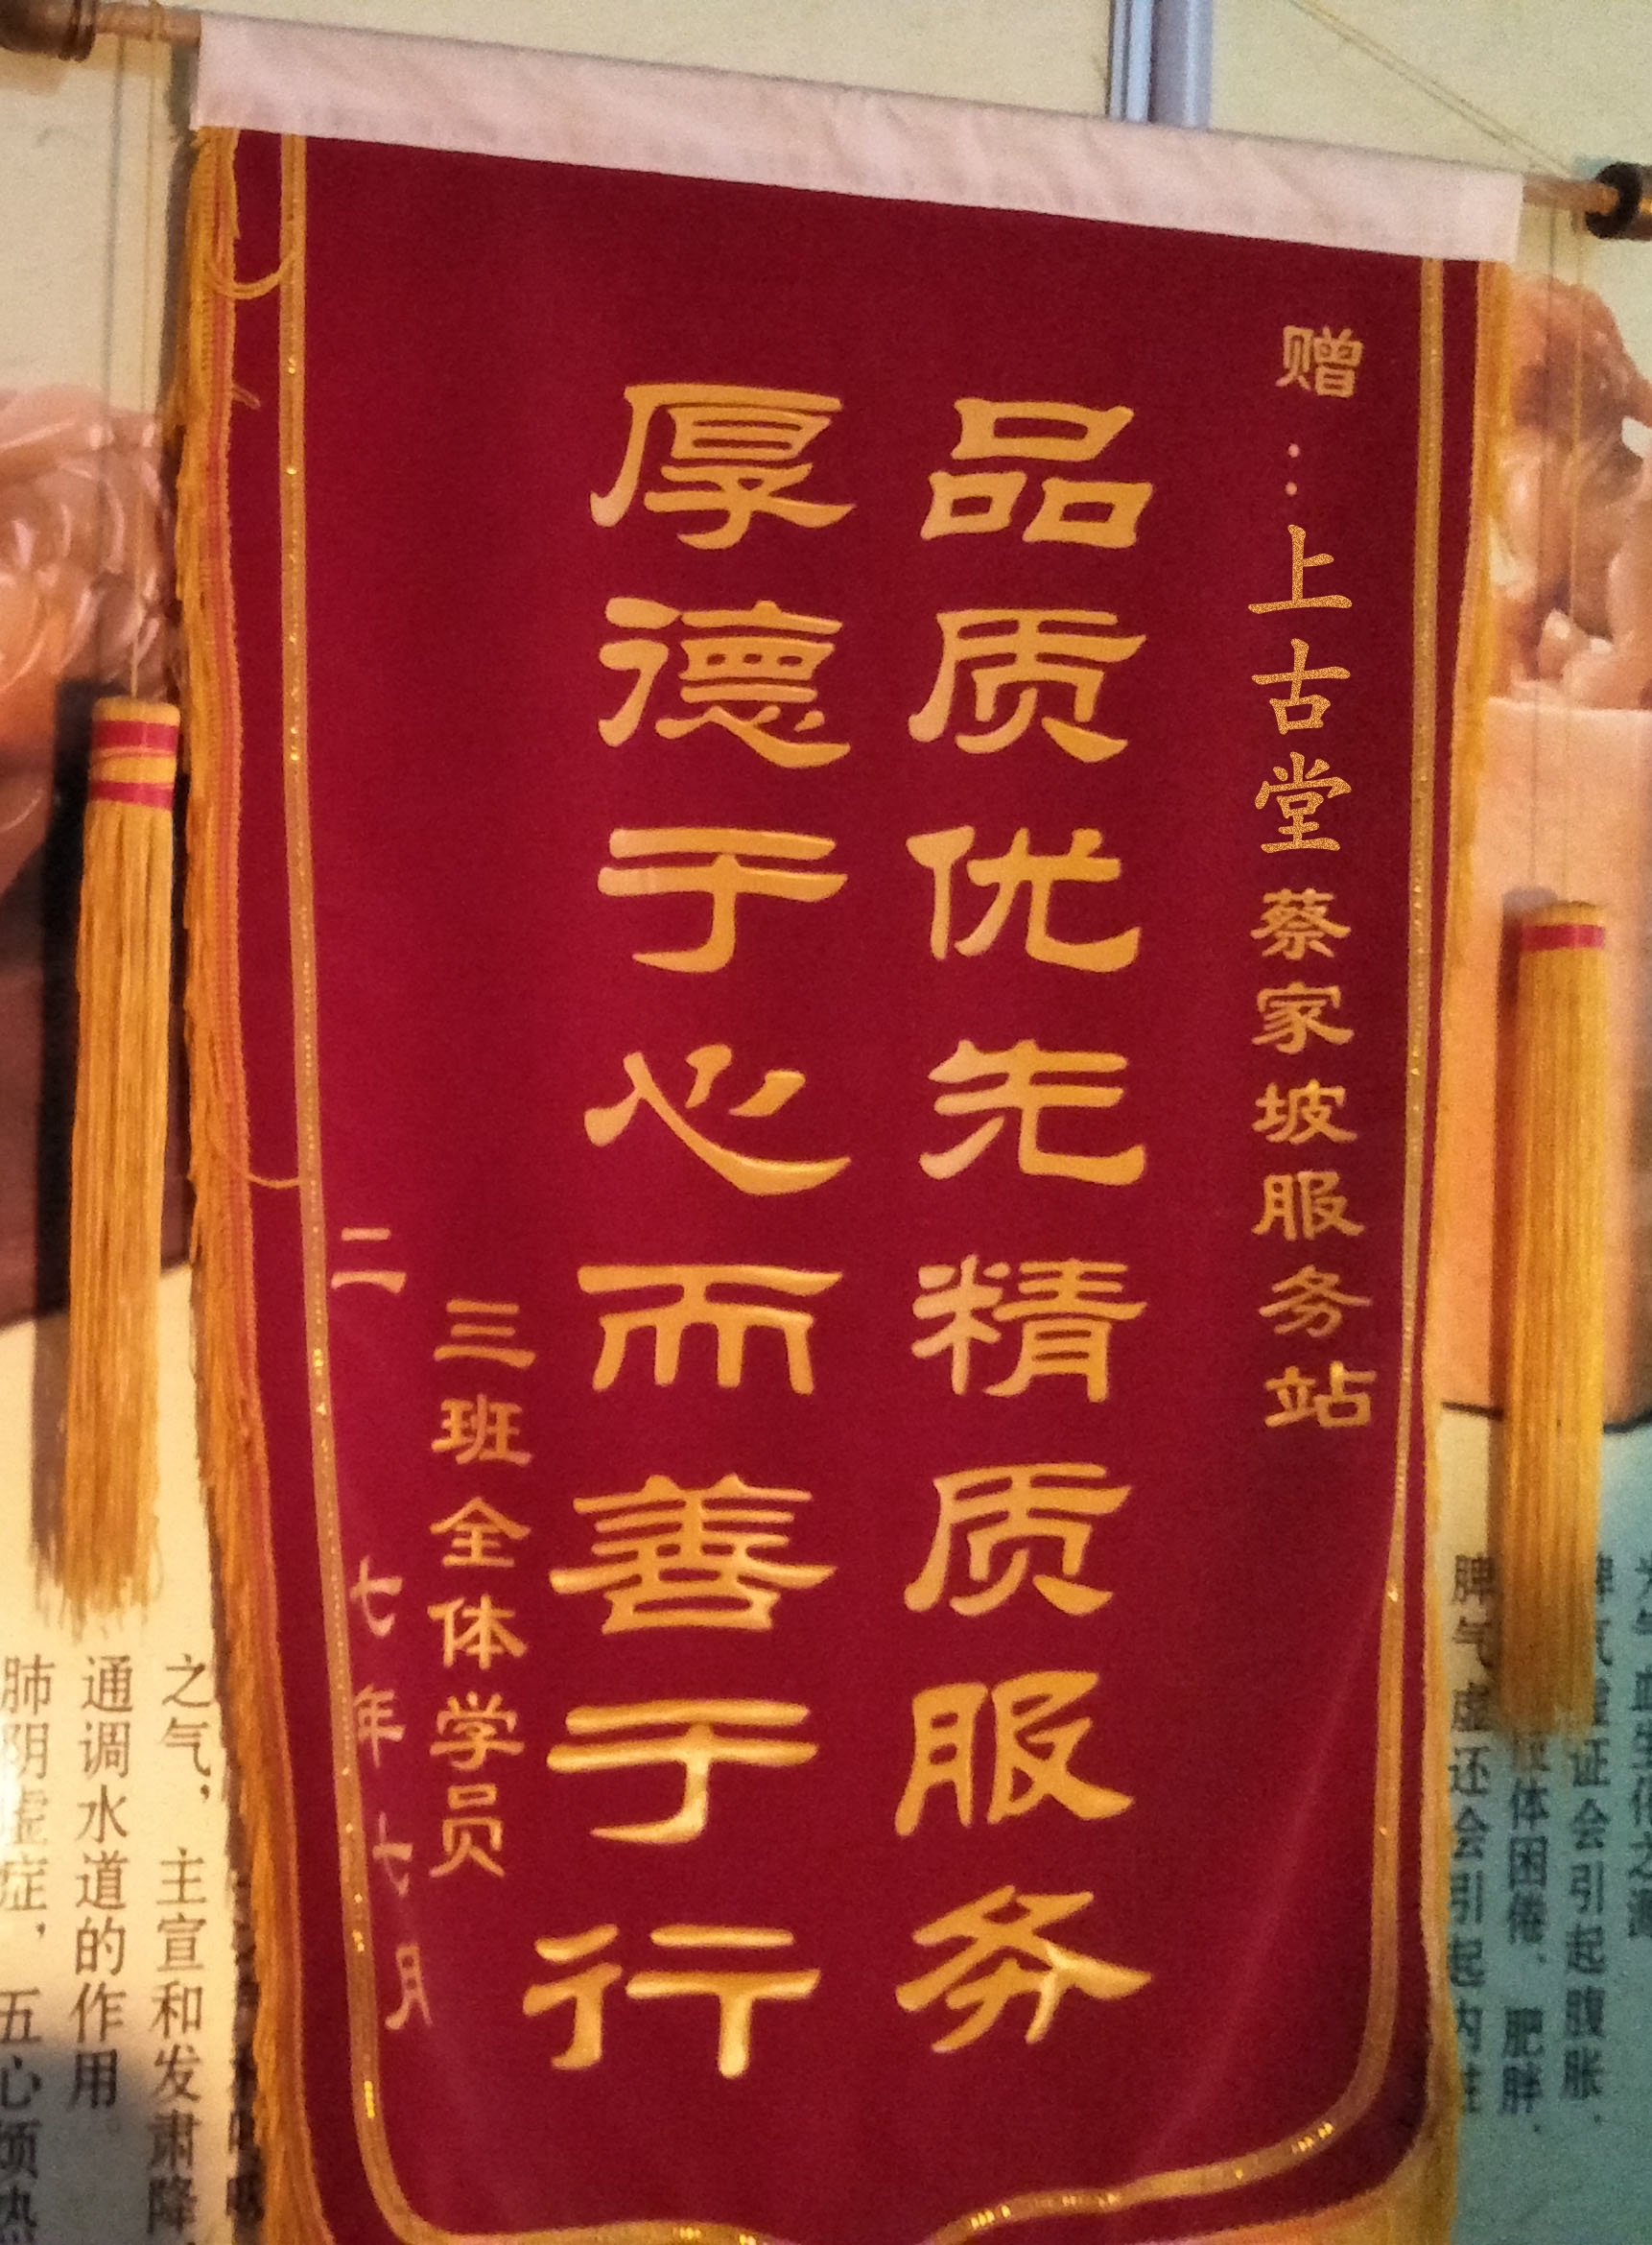 赠：上古堂蔡家坡服务站
品质优先精质服务
厚德于心而善于行
三班全体学员
二 七年七月
之气，主宣和发肃降，
通调水道的作用。
肺阴虚症，五心烦热
脾气虚还会引起内脏
体困倦、肥胖、
脾气虚证会引起腹胀、